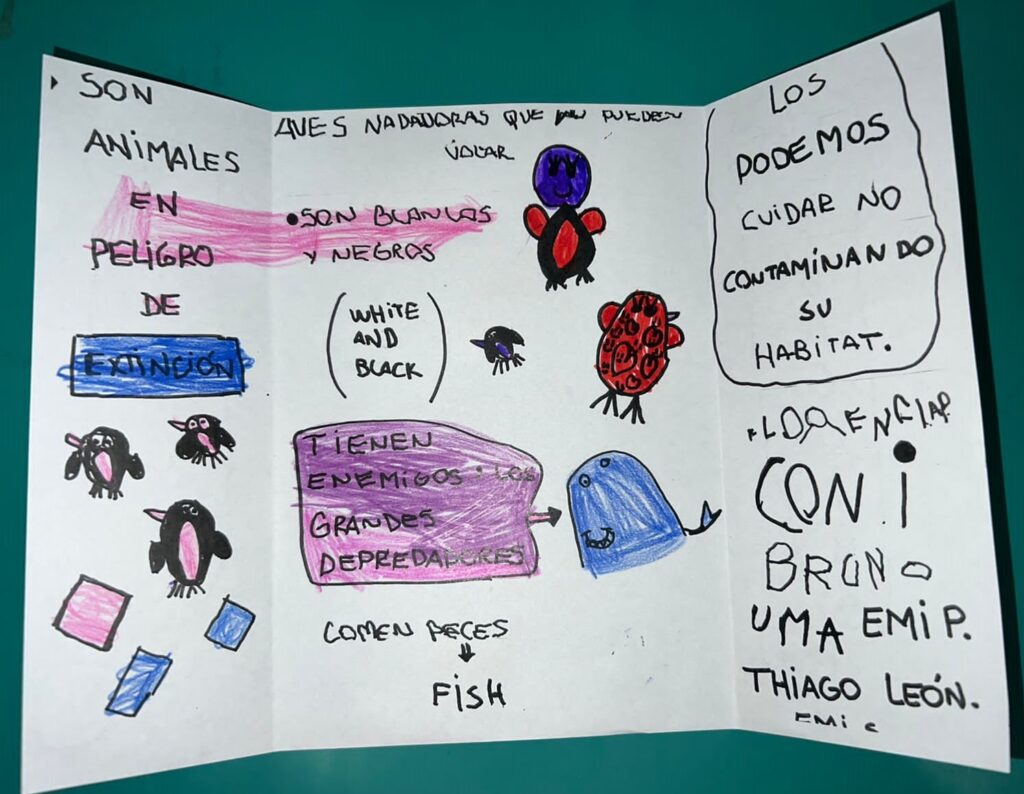 SON
ANIMALES
EN
PELIGRO
DE
EXTINCIÓN
AVES NADADORAS QUE NO PUEDEN
VOLAR
• SON BLANCOS
Y NEGROS
(WHITE
AND
BLACK)
TIENEN
ENEMIGOS: LOS
GRANDES
DEPREDADORES
COMEN PECES
FISH
LOS
PODEMOS
CUIDAR NO
CONTAMINANDO
SU
HABITAT.
CON i
BRUNO
UMA EMI P.
THIAGO LEÓN.
EMi C